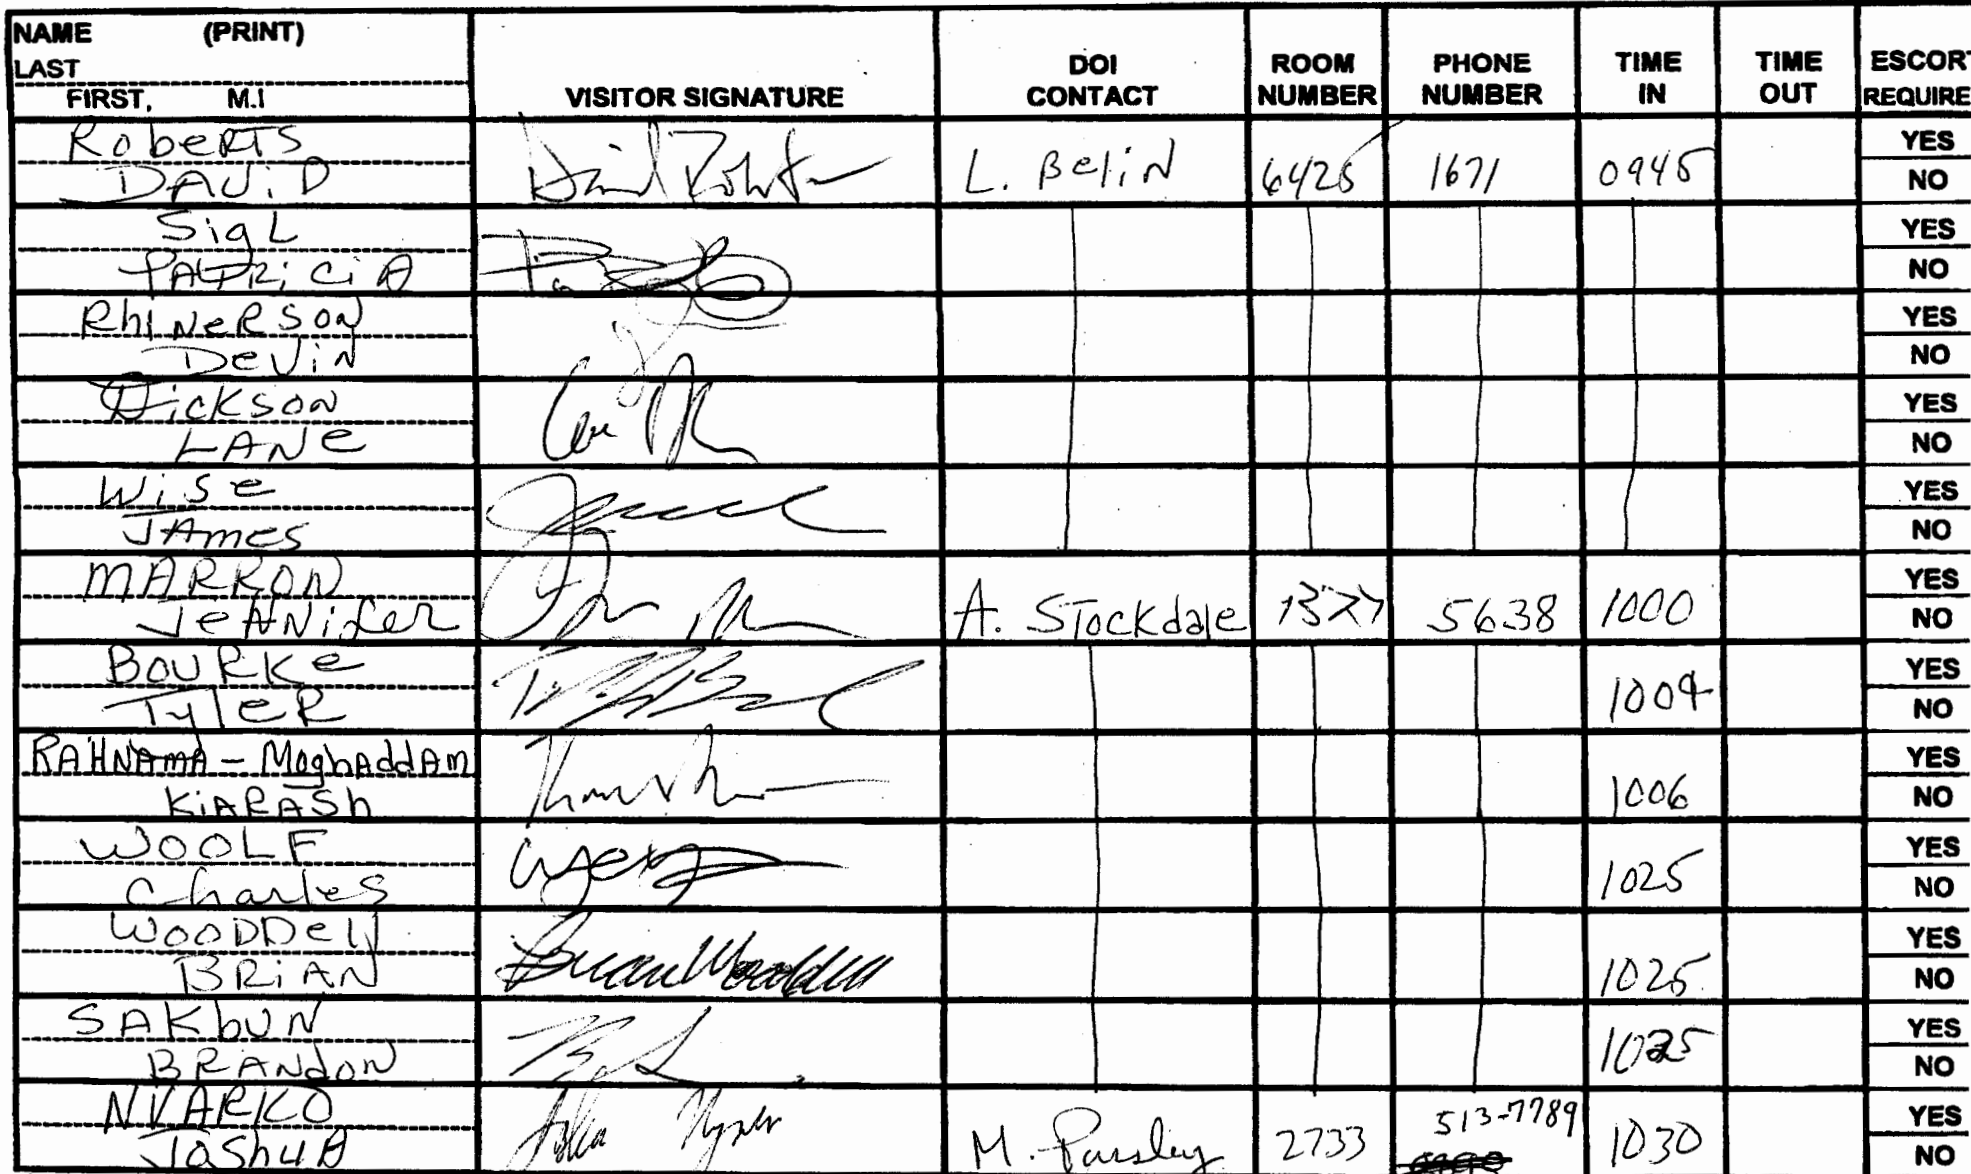 NAME (PRINT)
LAST
FIRST, M.I
VISITOR SIGNATURE
DOI CONTACT
ROOM NUMBER
PHONE NUMBER
TIME IN
TIME OUT
ESCOR
REQUIRE
Roberts
DAViD
David
L. Belin 6425 1671 0945
YES
NO
SigL
PATRiCiA
YES
NO
RhiNeRSON
DeViN
YES
NO
Dickson
LANe
YES
NO
Wise
JAmes
YES
NO
MARRON
JeNNifer
A. Stockdale
5638 1000
YES
NO
BOURKe
TyleR
1004
YES
NO
RAHNAmA - MoghAddAm
KiARASh
1006
YES
NO
WOOLF
Charles
1025
YES
NO
WOODDell
BRiAN
Brian Wooddell
1025
YES
NO
SAKbUN
BRANdON
1025
YES
NO
NYARKO
JOShUA
M. Pursley 2733 513-7789 1030
YES
NO